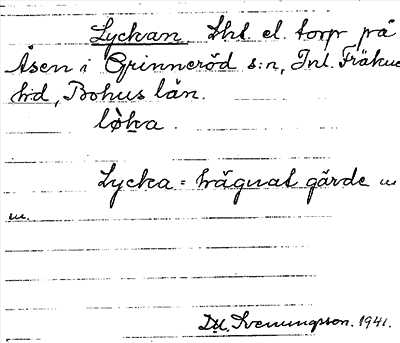 Lyckan Lht. el. torp på
Åsen i Grinneröd s:n, Inl. Fräkne
hd, Bohus län.
lø̀ka.
Lycka = hägnat gärde m
m.
D.U. Svenungsson. 1941.